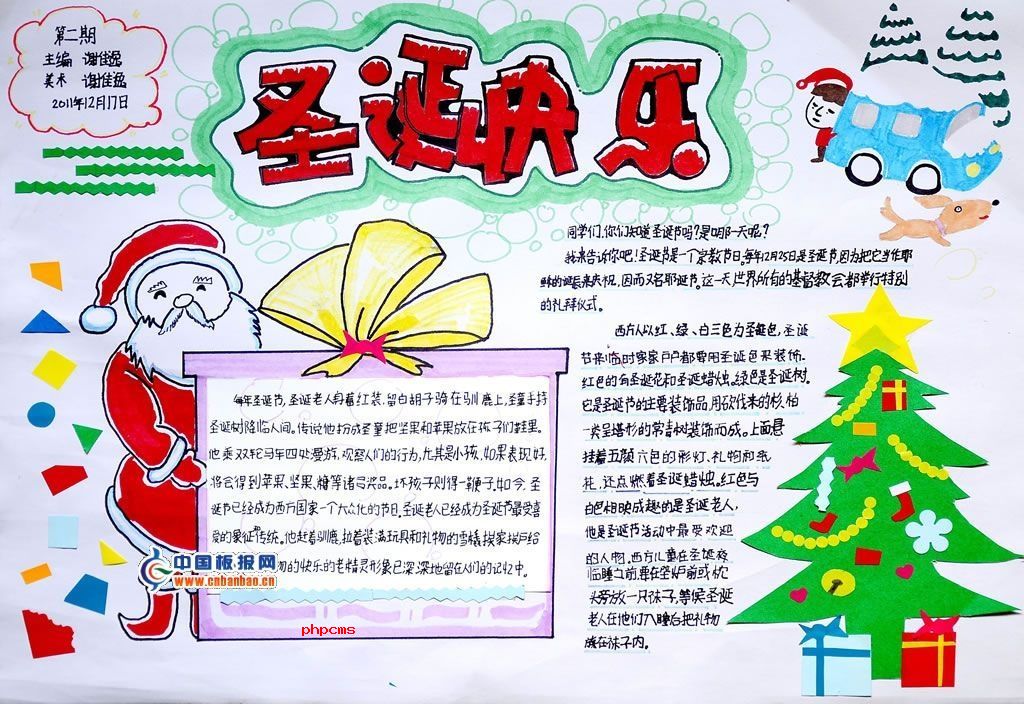 第二期
主编 谢佳逸
美术 谢佳逸
2011年12月17日
圣诞快乐
同学们,你们知道圣诞节吗?是哪一天呢?
我来告诉你吧!圣诞节是一个宗教节日,每年12月25日是圣诞节,因为把它当作耶
稣的诞辰来庆祝,因而又名耶诞节。这一天世界所有的基督教会都举行特别
的礼拜仪式。
西方人以红、绿、白三色为圣诞色,圣诞
节来临时家家户户都要用圣诞色来装饰。
红色的有圣诞花和圣诞蜡烛。绿色是圣诞树。
它是圣诞节的主要装饰品,用砍伐来的杉,柏
一类呈塔形的常青树装饰而成。上面悬
挂着五颜六色的彩灯、礼物和纸
花,还点燃着圣诞蜡烛。红色与
白色相映成趣的是圣诞老人,
他是圣诞节活动中最受欢迎
的人物。西方儿童在圣诞夜
临睡之前,要在壁炉前或枕
头旁放一只袜子,等候圣诞
老人在他们入睡后把礼物
放在袜子内。
每年圣诞节,圣诞老人身着红装,留白胡子骑在驯鹿上,圣童手持
圣诞树降临人间。传说他扮成圣童把坚果和苹果放在孩子们鞋里。
他乘双轮马车四处漫游,观察人们的行为,尤其是小孩,如果表现好,
将会得到苹果、坚果、糖等诸多奖品。坏孩子则得一鞭子。如今,圣
诞节已经成为西方国家一个大众化的节日,圣诞老人已经成为圣诞节最受喜
爱的象征传统。他赶着驯鹿,拉着装满玩具和礼物的雪橇挨家挨户给
物的快乐的老精灵形象已深深地留在人们的记忆中。
中国板报网
www.cnbanbao.cn
phpcms